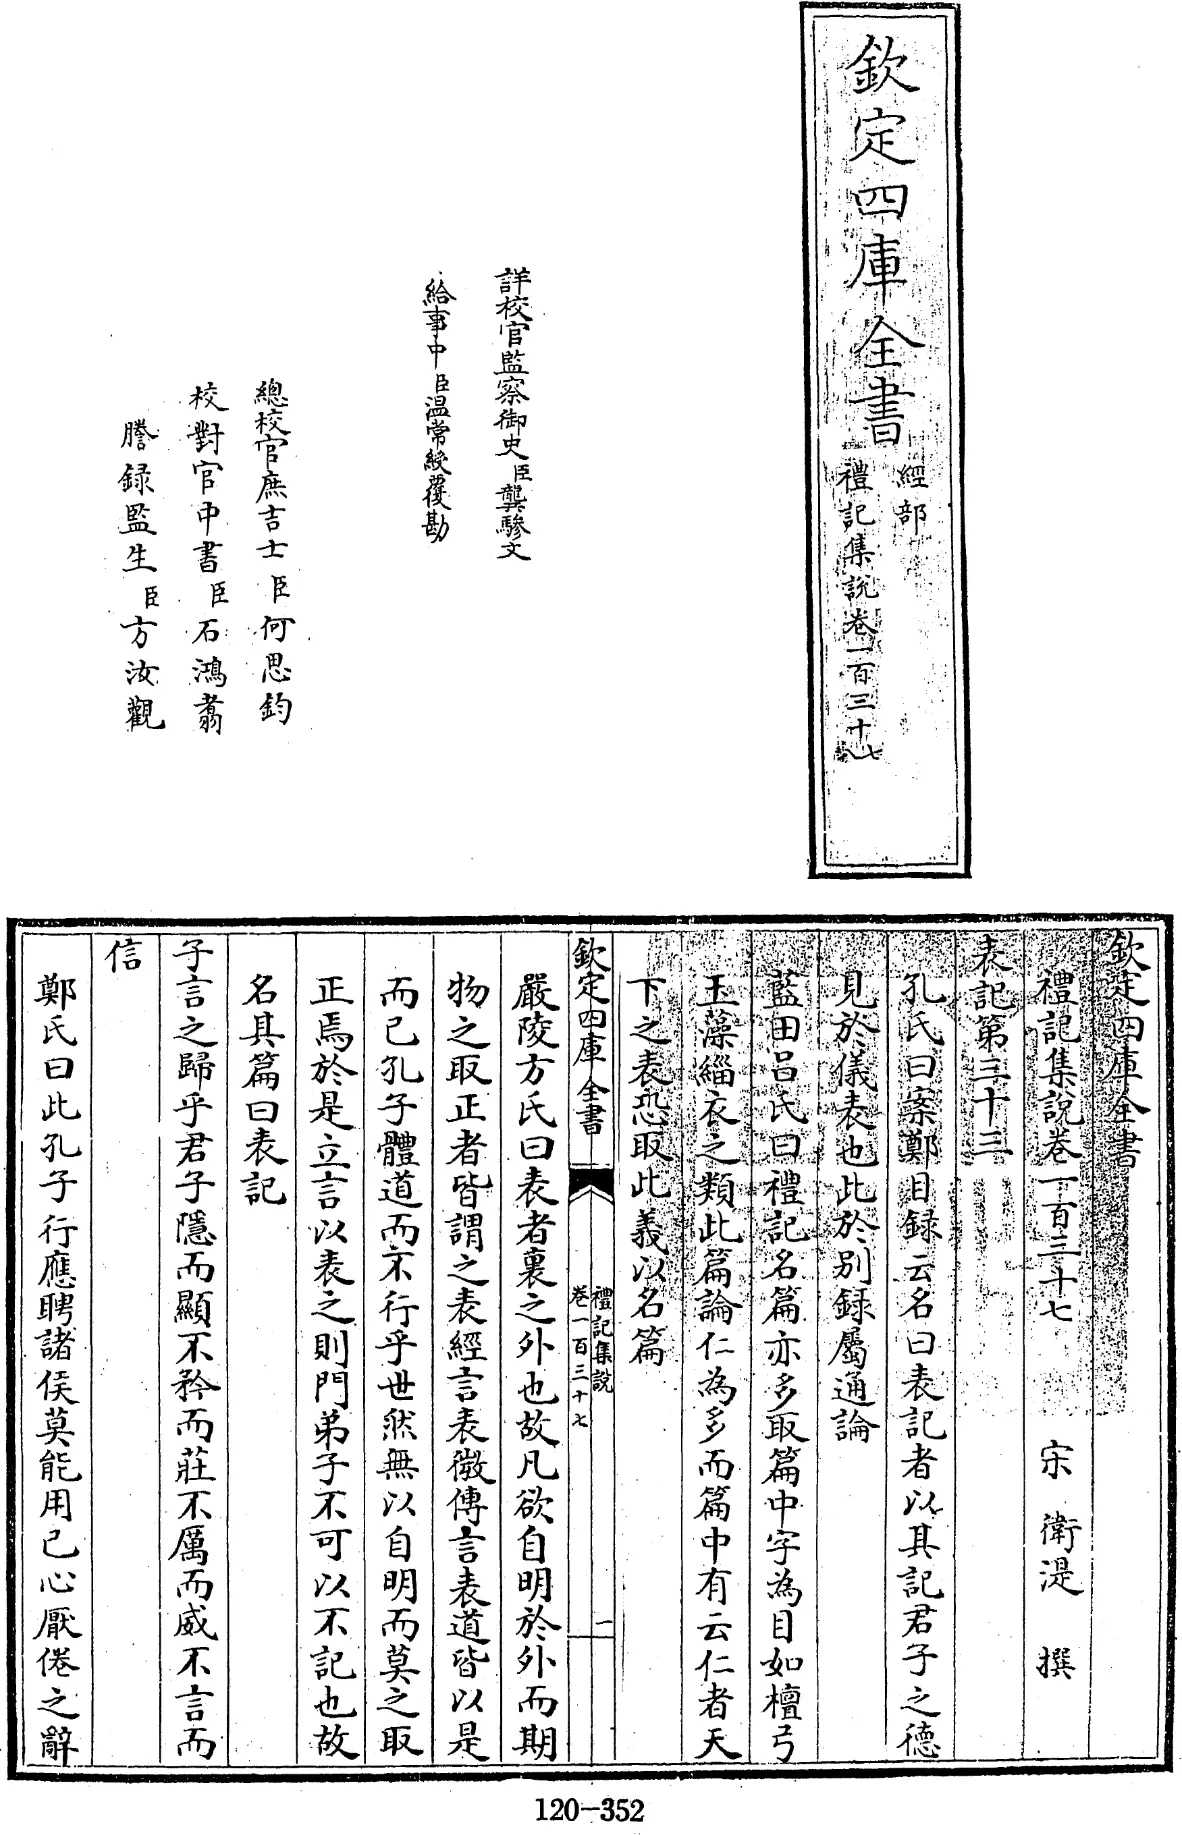 欽定四庫全書
經部
禮記集說卷一百三十七
詳校官監察御史臣龔驂文
給事中臣温常綬覆勘
總校官庶吉士臣何思鈞
校對官中書臣石鴻翥
謄録監生臣方汝觀
欽定四庫全書
禮記集說卷一百三十七
宋 衛湜 撰
表記第三十三
孔氏曰案鄭目録云名曰表記者以其記君子之德
見於儀表也此於别録屬通論
藍田吕氏曰禮記名篇亦多取篇中字為目如檀弓
玉藻緇衣之類此篇論仁為多而篇中有云仁者天
下之表恐取此義以名篇
欽定四庫全書
禮記集說
卷一百三十七
一
嚴陵方氏曰表者裏之外也故凡欲自明於外而期
物之取正者皆謂之表經言表微傳言表道皆以是
而已孔子體道而不行乎世然無以自明而莫之取
正焉於是立言以表之則門弟子不可以不記也故
名其篇曰表記
子言之歸乎君子隱而顯不矜而莊不厲而威不言而
信
鄭氏曰此孔子行應聘諸侯莫能用已心厭倦之辭
120-352